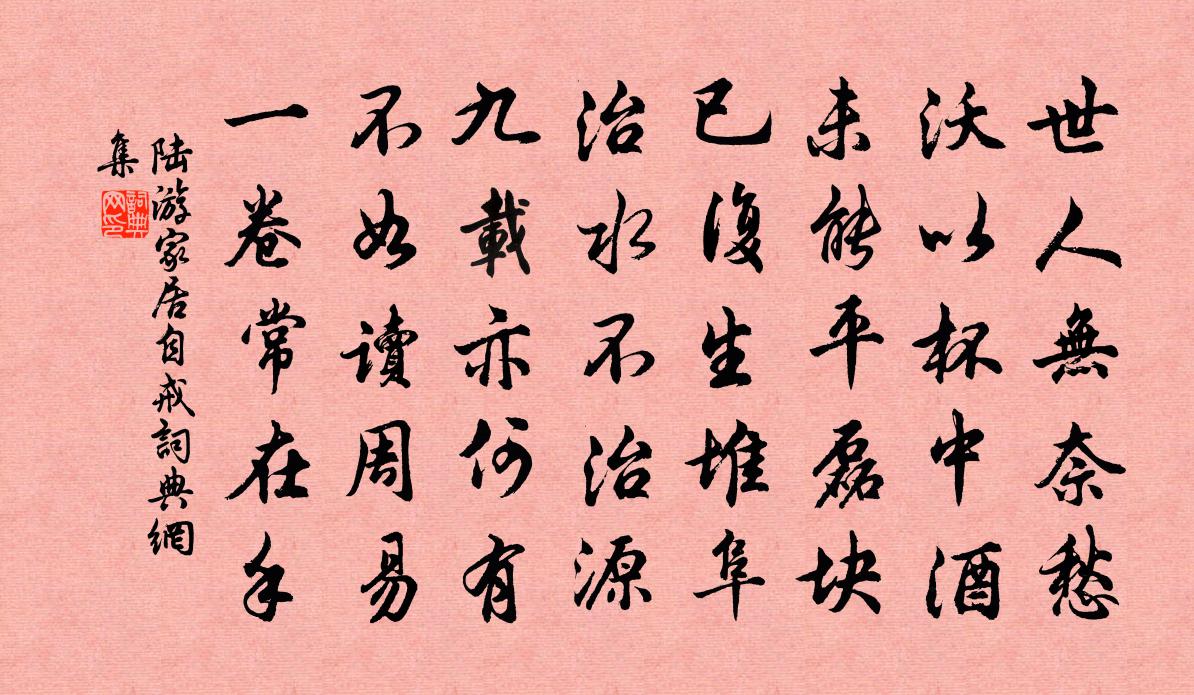 世人無奈愁
沃以杯中酒
未能平磊块
已復生堆阜
治水不治源
九載亦何有
不如讀周易
一卷常在手
陆游家居自戒詞典網
集
詞典
网印